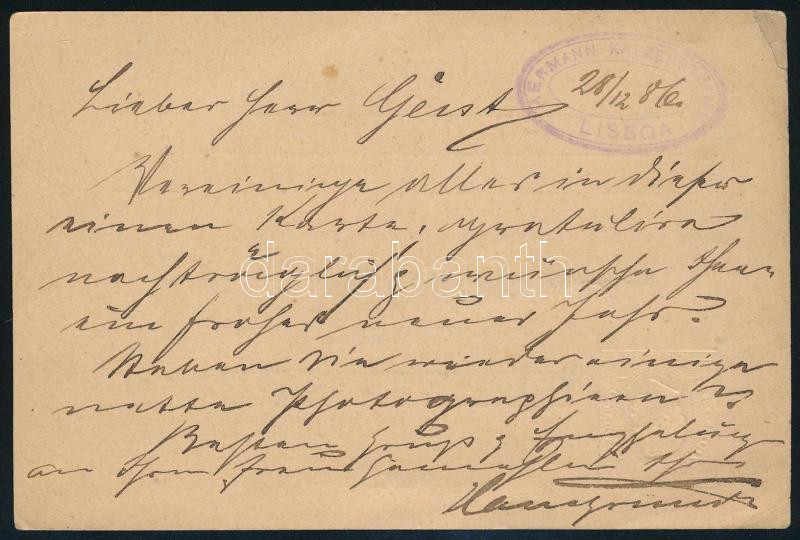 HERMANN KATZENSTEIN
28/12 86.
LISBOA
Lieber Herr Geist
Vereinige alles in dieser
einen Karte, gratulire
nachträglich & wünsche Ihnen
ein frohes neues Jahr.
Haben Sie wieder einige
nette Photographieen
Besten Gruß & Empfehlung
an Ihre Frau Gemahlin Ihr
darabanth